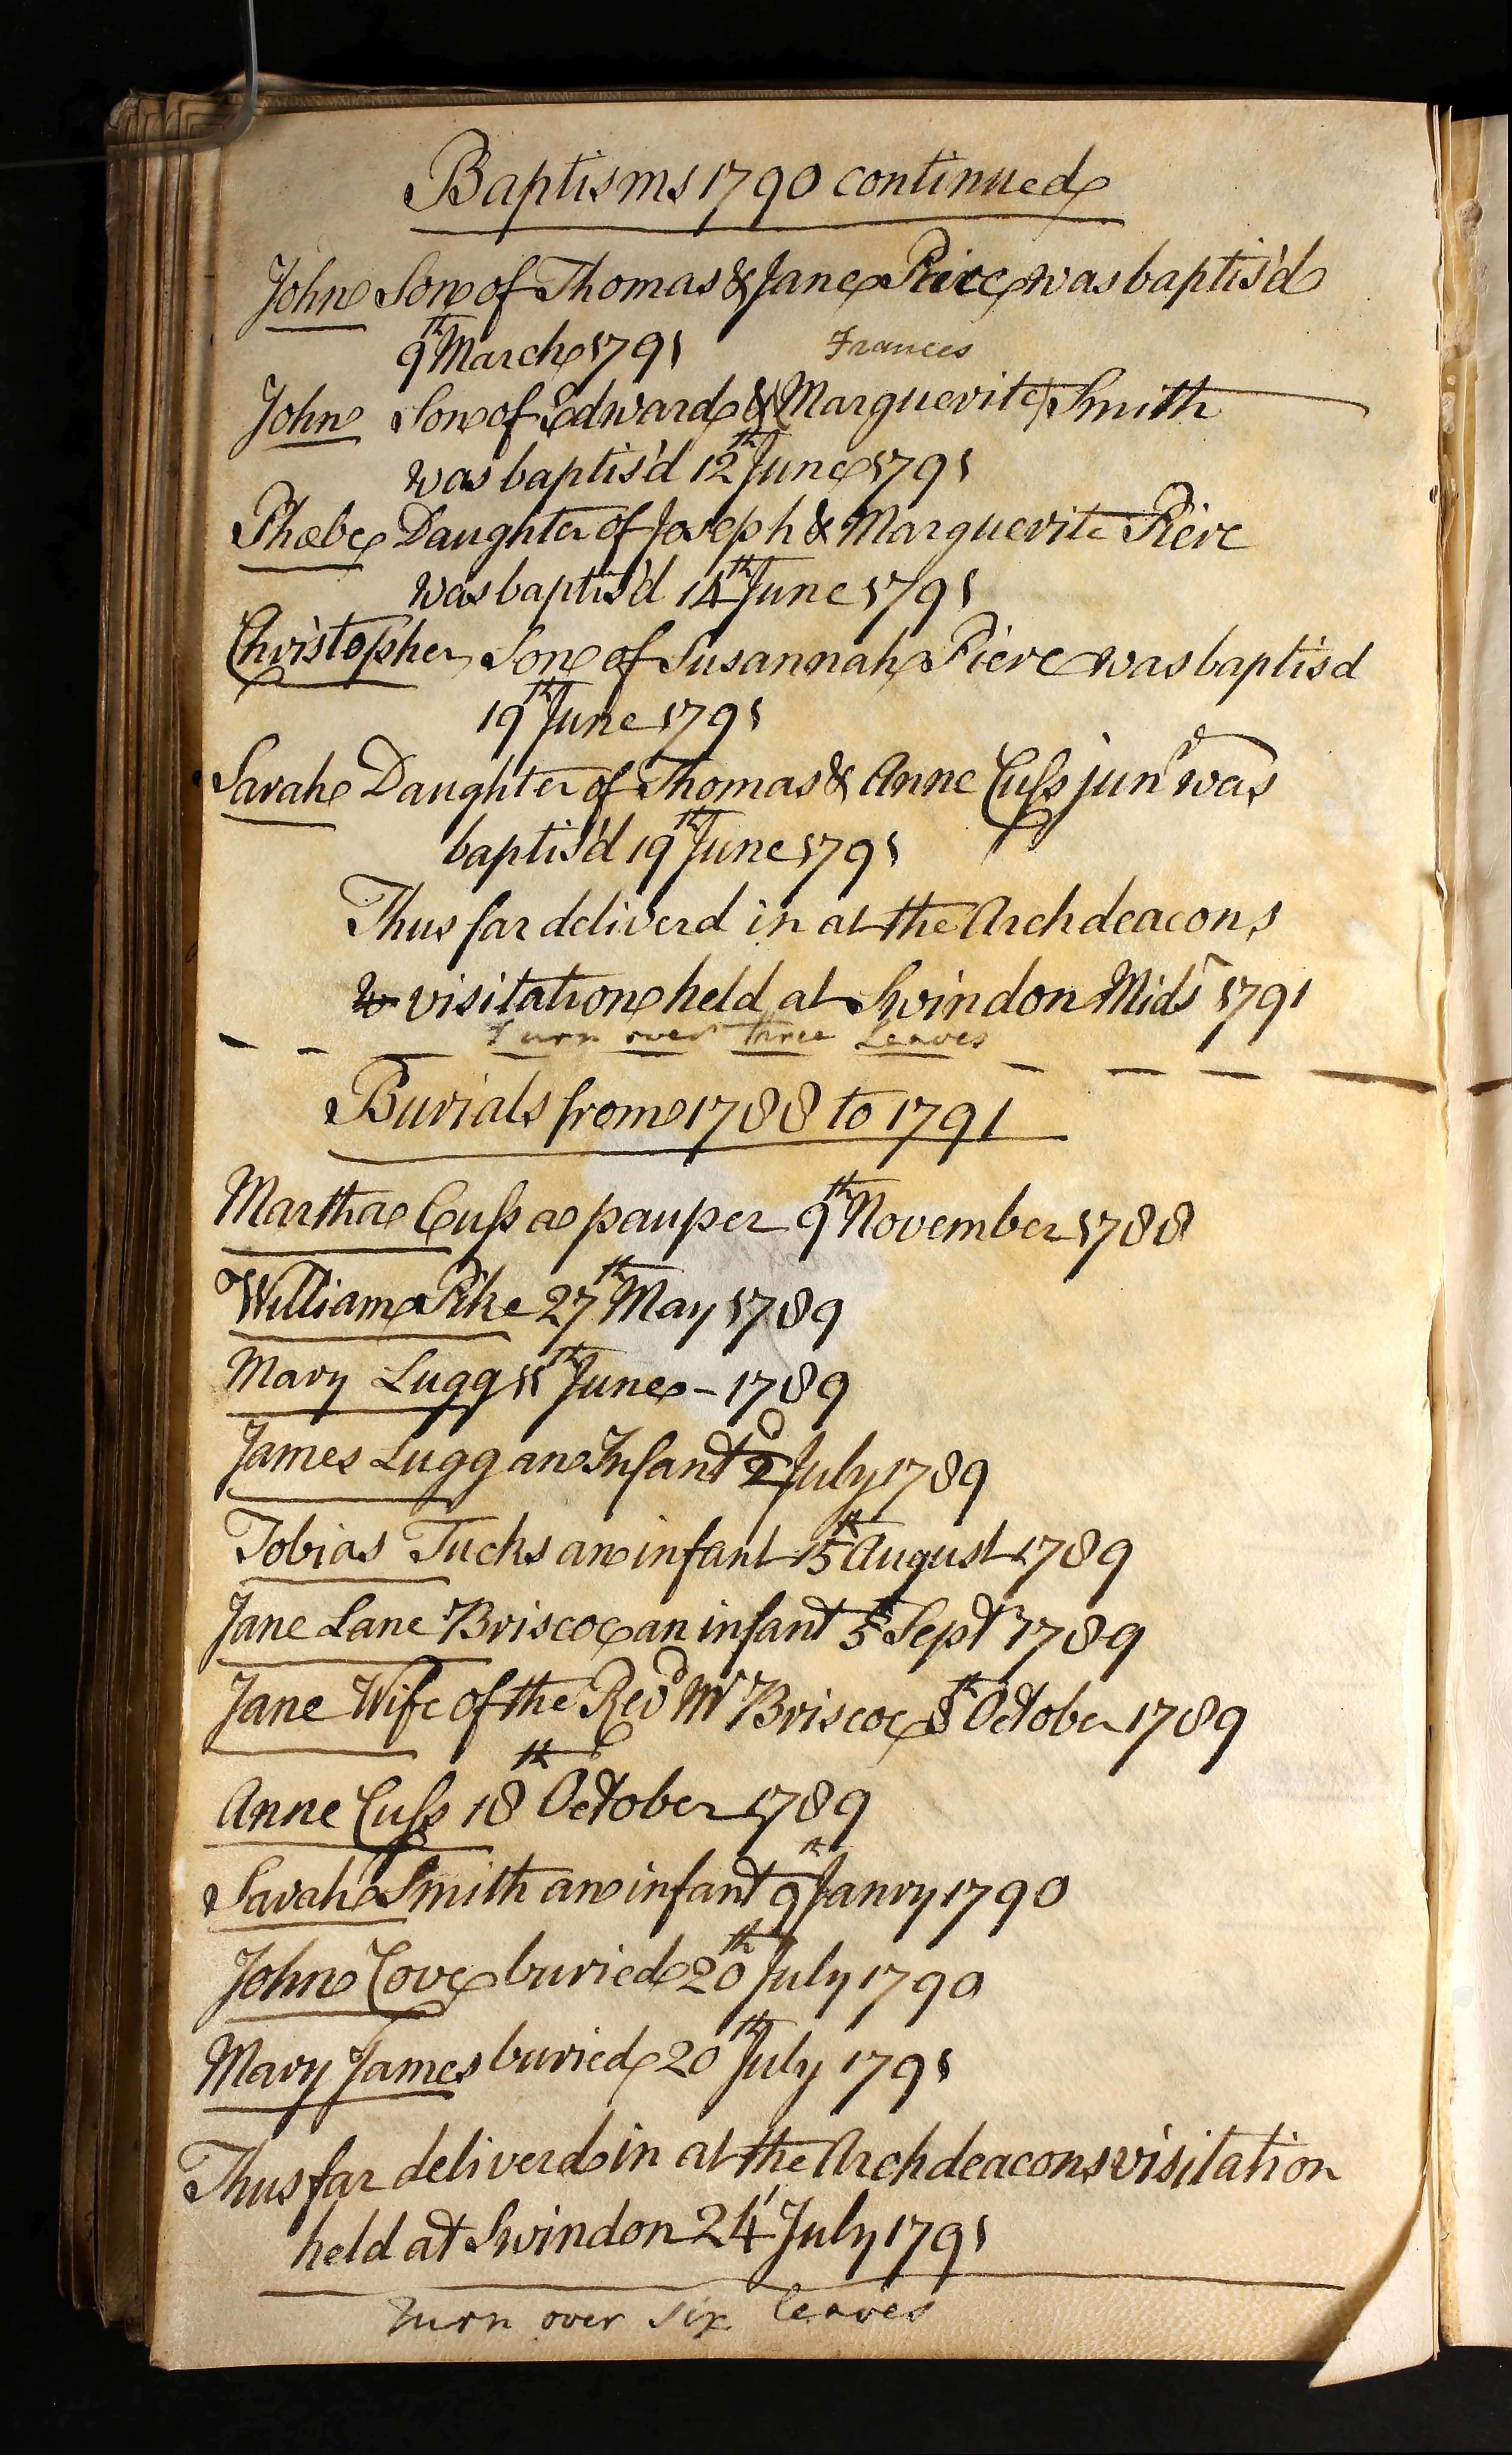 Baptisms 1790 continued
John Son of Thomas & Jane Pierce was baptis'd
9th March 1791
Frances
John Son of Edward & Marguerite Smith
was baptis'd 12th June 1791
Phœbe Daughter of Joseph & Marguerite Pierc
was baptis'd 14th June 1791
Christopher Son of Susannah Pierc was baptisd
19th June 1791
Sarah Daughter of Thomas & Anne Cuss junr was
baptis'd 19th June 1791
Thus far deliverd in at the Archdeacons
visitation held at Swindon Mids 1791
Turn over three Leaves
Burials from 1788 to 1791
Martha Cuss a pauper 9th November 1788
William Pike 27th May 1789
Mary Lugg 11th June - 1789
James Lugg an Infant 2d July 1789
Tobias Tucks an infant 15th August 1789
Jane Lane Briscoe an infant 5th Sept 1789
Jane Wife of the Revd Mr Briscoe 8th October 1789
Anne Cuss 18th October 1789
Sarah Smith an infant 9th Janry 1790
John Cove buried 20th July 1790
Mary James buried 20th July 1791
Thus far deliverd in at the Archdeacons visitation
held at Swindon 24 July 1791
Turn over six leaves